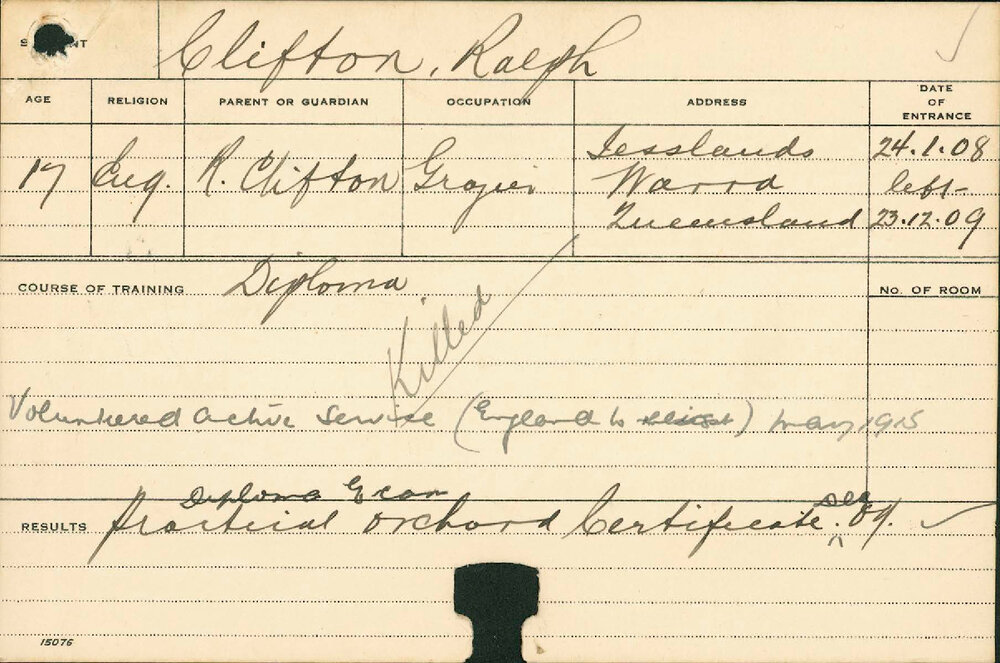 Clifton, Ralph
AGE RELIGION PARENT OR GUARDIAN OCCUPATION ADDRESS DATE OF ENTRANCE
17 Eng. R. Clifton Grazier Jesslands 24.1.08
Warra left-
Queensland 23.12.09
COURSE OF TRAINING Diploma No. OF ROOM
Killed
Volunteered active service (England to enlist) May 1915
Diploma Exam Dec
RESULTS Practical Orchard Certificate. ^ 09.
15076